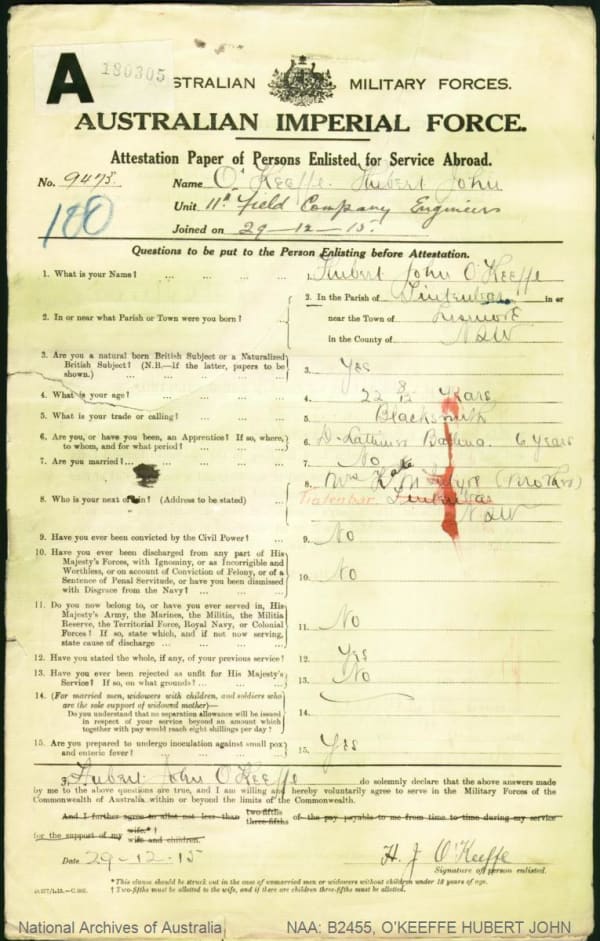 A 180305
AUSTRALIAN MILITARY FORCES.
AUSTRALIAN IMPERIAL FORCE.
Attestation Paper of Persons Enlisted for Service Abroad.
No. 9473 Name O'Keeffe Hubert John
180 Unit 11th Field Company Engineers
Joined on 29-12-15
Questions to be put to the Person Enlisting before Attestation.
1. What is your Name? ... ... ... ... 1. Hubert John O'Keeffe
2. In or near what Parish or Town were you born? ... 2. In the Parish of Tintenbar in or
near the Town of Lismore
in the County of NSW
3. Are you a natural born British Subject or a Naturalized
British Subject? (N.B.—If the latter, papers to be
shown.) ... ... ... ... 3. Yes
4. What is your age? ... ... ... ... 4. 22 8/12 Years
5. What is your trade or calling? ... ... ... 5. Blacksmith
6. Are you, or have you been, an Apprentice? If so, where,
to whom, and for what period? ... ... 6. D. Ballina. 6 years
7. Are you married? ... ... ... ... 7. No
8. Who is your next of kin? (Address to be stated) ... 8. Mrs Kate (Mother)
Tintenbar Tintenbar
NSW
9. Have you ever been convicted by the Civil Power? ... 9. No
10. Have you ever been discharged from any part of His
Majesty's Forces, with Ignominy, or as Incorrigible and
Worthless, or on account of Conviction of Felony, or of a
Sentence of Penal Servitude, or have you been dismissed
with Disgrace from the Navy? ... ... 10. No
11. Do you now belong to, or have you ever served in, His
Majesty's Army, the Marines, the Militia, the Militia
Reserve, the Territorial Force, Royal Navy, or Colonial
Forces? If so, state which, and if not now serving,
state cause of discharge ... ... ... 11. No
12. Have you stated the whole, if any, of your previous service? 12. Yes
13. Have you ever been rejected as unfit for His Majesty's
Service? If so, on what grounds? ... ... 13. No
14. (For married men, widowers with children, and soldiers who
are the sole support of widowed mother)—
Do you understand that no separation allowance will be issued
in respect of your service beyond an amount which
together with pay would reach eight shillings per day? 14.
15. Are you prepared to undergo inoculation against small pox
and enteric fever? ... ... ... ... 15. Yes
I, Hubert John O'Keeffe do solemnly declare that the above answers made
by me to the above questions are true, and I am willing and hereby voluntarily agree to serve in the Military Forces of the
Commonwealth of Australia within or beyond the limits of the Commonwealth.
And I further agree to allot not less than two-fifths three-fifths of the pay payable to me from time to time during my service
for the support of my wife.*† wife and children.
Date 29-12-15 H. J O'Keeffe
Signature of person enlisted.
*This clause should be struck out in the case of unmarried men or widowers without children under 18 years of age.
†Two-fifths must be allotted to the wife, and if there are children three-fifths must be allotted.
National Archives of Australia NAA: B2455, O'KEEFFE HUBERT JOHN